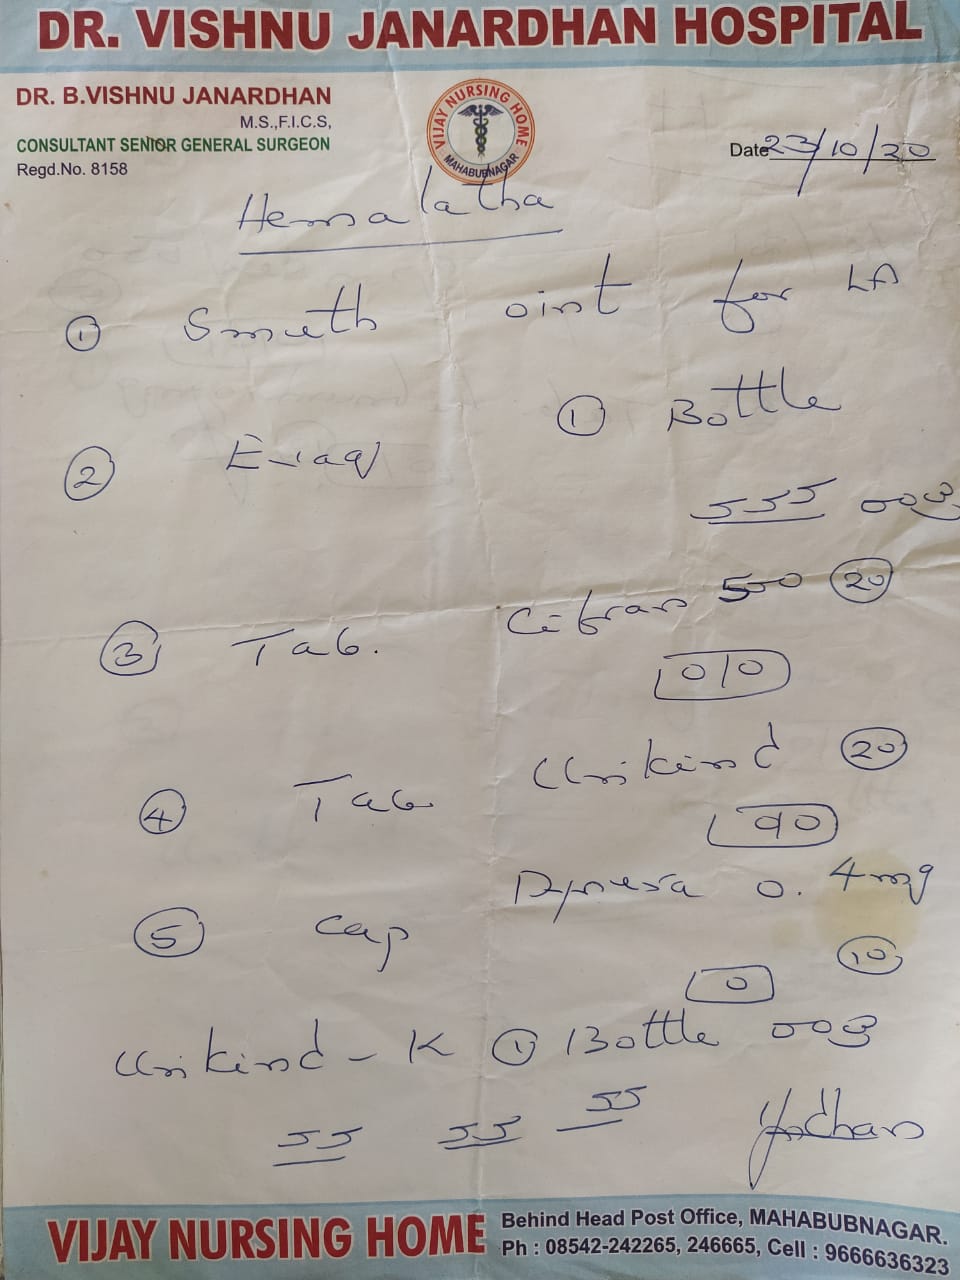 DR. VISHNU JANARDHAN HOSPITAL
DR. B.VISHNU JANARDHAN
M.S.,F.I.C.S,
CONSULTANT SENIOR GENERAL SURGEON
Regd.No. 8158
VIJAY NURSING HOME
MAHABUBNAGAR
Date 23/10/20
Hemalatha
① Smuth oint for LA
② ① Bottle
③ Tab. Cifran 500 ⑳
④ Tab Urikind ⑳
⑤ Cap 0.4mg
⑩
Urikind - K ① Bottle
VIJAY NURSING HOME
Behind Head Post Office, MAHABUBNAGAR.
Ph : 08542-242265, 246665, Cell : 9666636323